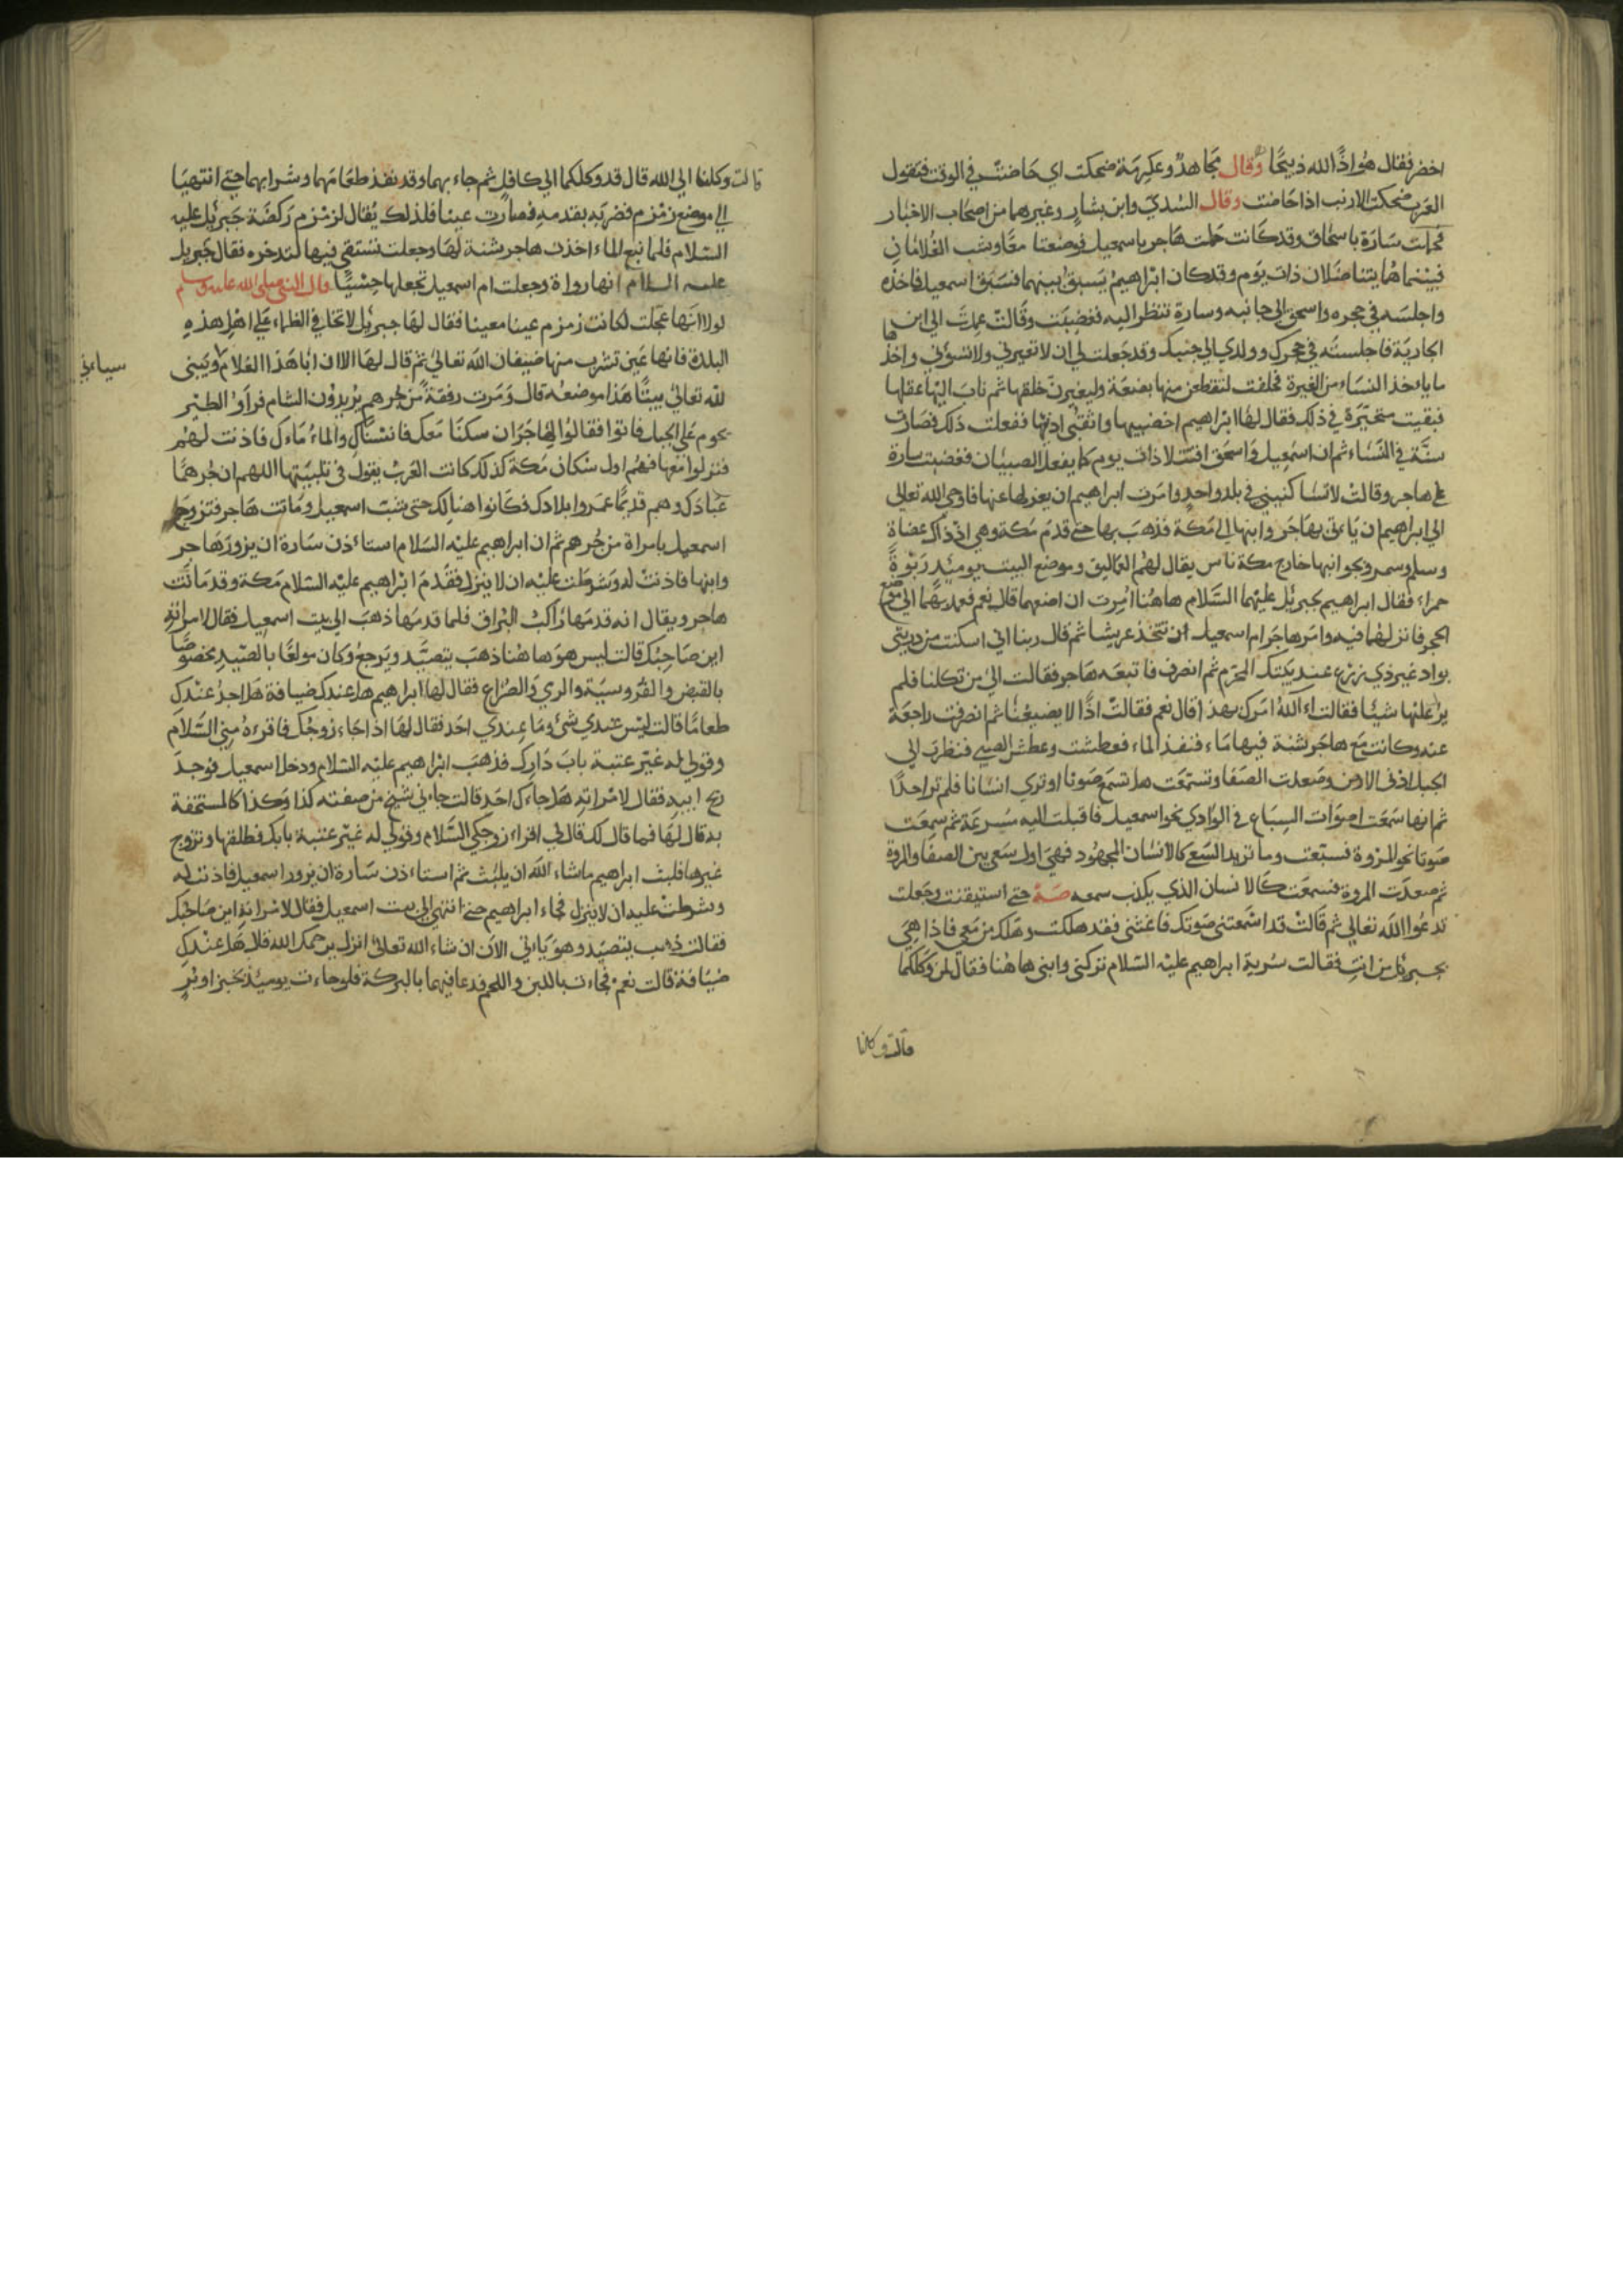 اخضر فقال هو اذًا لله ذبيحًا وقال مجاهد وعكرمة ضحكت اي حاضت في الوقت فتقول
العرب ضحكت الارنب اذا حاضت وقال السدي وابن يشار وغيرهما من اصحاب الاخبار
فحملت سارة باسحاق وقد كانت حملت هاجر باسمعيل فوضعتا معًا وشب الغلامان
فبينما هما يتناضلان ذات يوم وقد كان ابراهيم يسبق بينهما فسبق اسمعيل فاخذه
واجلسه في حجره واسحق الى جانبه وسارة تنظر اليه فغضبت وقالت عمدت الي ابن
الجارية فاجلسته في حجرك وولدي الي جنبك وقد جعلت لي ان لا تغيرني ولا تسؤني واخذها
ما ياءخذ النساء من الغيرة فحلفت لتقطعن منها بضعة وليغيرن خلقها ثم ثاب اليها عقلها
فبقيت متحيرة في ذلك فقال لها ابراهيم اخفضيها واثقبي اذنها ففعلت ذلك فصارت
سنة في النساء ثم ان اسمعيل واسحق اقتتلا ذات يوم كما يفعل الصبيان فغضبت سارة
على هاجر وقالت لا تساكنيني في بلد واحد وامرت ابراهيم ان يعزلها عنها فاوحي الله تعالي
الي ابراهيم ان ياءتي بهاجر وابنها الي مكة فذهب بها حتى قدم مكة وهي اذ ذاك عضاة
وسلم وسمر ونحو ابنها خارج مكة ناس يقال لهم العماليق وموضع البيت يومئذ ربوة
حمراء فقال ابراهيم لجبرئل عليهما السلام هاهنا امرت ان اضعهما قال نعم فعمد بهما الي موضع
الحجر فانزلهما فيه وامر هاجر ام اسمعيل ان تتخذ عريشا ثم قال ربنا اني اسكنت من ذريتي
بواد غير ذي زرع عند بيتك المحرم ثم انصرف فاتبعه هاجر فقالت الي من تكلنا فلم
يرد عليها شيئًا فقالت اءالله امرك بهذا قال نعم فقالت اذًا لا يضيعنا ثم انصرفت راجعة
عنه وكانت مع هاجر شنة فيها ماء فنفذ الماء فعطشت وعطش الصبي فنظرت الي
الجبل ادنى الارض فصعدت الصفا وتسمعت هل تسمع صوتا او تري انسانا فلم تر احدًا
ثم انها سمعت اصوات السباع في الوادي نحو اسمعيل فاقبلت اليه بسرعة ثم سمعت
صوتا نحو المروة فسعت وما تريد السعي كالانسان المجهود فهي اول من سعي بين الصفا والمروة
ثم صعدت المروة فسمعت كالانسان الذي يكذب سمعه صه حتي استيقنت وجعلت
تدعوا الله تعالي ثم قالت قد اسمعتني صوتك فاغثني فقد هلكت وهلك من معي فاذا هي
بجبرئل من انت فقالت سرية ابراهيم عليه السلام تركني وابني هاهنا فقال لمن وكلكما
قالت وكلنا
قالت وكلنا الي الله قال قد وكلكما الي كافل ثم جاء بهما وقد نفذ طعامهما وشرابهما حتي انتهيا
الي موضع زمزم فضربه بقدمه فصارت عينا فلذلك يقال لزمزم ركضة جبرئل عليه
السلام فلما نبع الماء اخذت هاجر شنة لها وجعلت تستقي فيها لتدخره فقال جبريل
عليه السلام انها رواة وجعلت ام اسمعيل تجعلها حسيًا قال النبي صلى الله عليه وسلم
لولا انها عجلت لكانت زمزم عينا معينا فقال لها جبرئل لا تخافي الظماء على اهل هذه
البلدة فانها عين تشرب منها ضيفان الله تعالي ثم قال لها الا ان ابا هذا الغلام ويبني
سياءتي
لله تعالي بيتًا هذا موضعه قال ومرت رفقة من جرهم يريدون الشام فراو الطير
يحوم على الجبل فاتوا فقالوا لهاجر ان سكنا معك فانسناك والماء ماءك فاذنت لهم
فنزلوا معها فهم اول سكان مكة كذلك كانت العرب يقول في تلبيتها اللهم ان جرهمًا
عبادك وهم قديمًا عمروا بلادك فكانوا هنالك حتى شب اسمعيل وماتت هاجر فتزوج
اسمعيل بامراة من جرهم ثم ان ابراهيم عليه السلام استاءذن سارة ان يزور هاجر
وابنها فاذنت له وشرطت عليه ان لا ينزل فقدم ابراهيم عليه السلام مكة وقد ماتت
هاجر ويقال انه قدمها راكب البراق فلما قدمها ذهب الي بيت اسمعيل فقال لامراته
اين صاحبك قالت ليس هو هاهنا ذهب يتصيد ويرجع وكان مولعًا بالصيد مخصوصًا
بالقبض والفروسية والري والصراع فقال لها ابراهيم هل عندك ضيافة هل اجد عندك
طعامًا قالت ليس عندي شئ وما عندي احد فقال لها اذا جاء زوجك فاقرءه مني السلام
وقولي له غير عتبة باب دارك فذهب ابراهيم عليه السلام ودخل اسمعيل فوجد
ريح ابيه فقال لامراته هل جاءك احد قالت جاءني شيخ من صفته كذا وكذا كالمستخفة
به قال لها فما قال لك قال لي اقراء زوجكي السلام وقولي له غير عتبة بابك فطلقها وتزوج
غيرها فلبث ابراهيم ما شاء الله ان يلبث ثم استاءذن سارة ان يزور اسمعيل فاذنت له
وشرطت عليه ان لا ينزل فجاء ابراهيم حتى انتهي الي بيت اسمعيل فقال لامراته اين صاحبك
فقالت ذهب يتصيد وهو ياءتي الان ان شاء الله تعالى انزل يرحمك الله قال هل عندك
ضيافة قالت نعم فجاءت باللبن واللحم فدعا فيهما بالبركة فلو جاءت يومئذ بخبز او بر